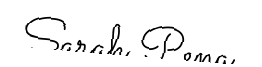 Sarah Pena